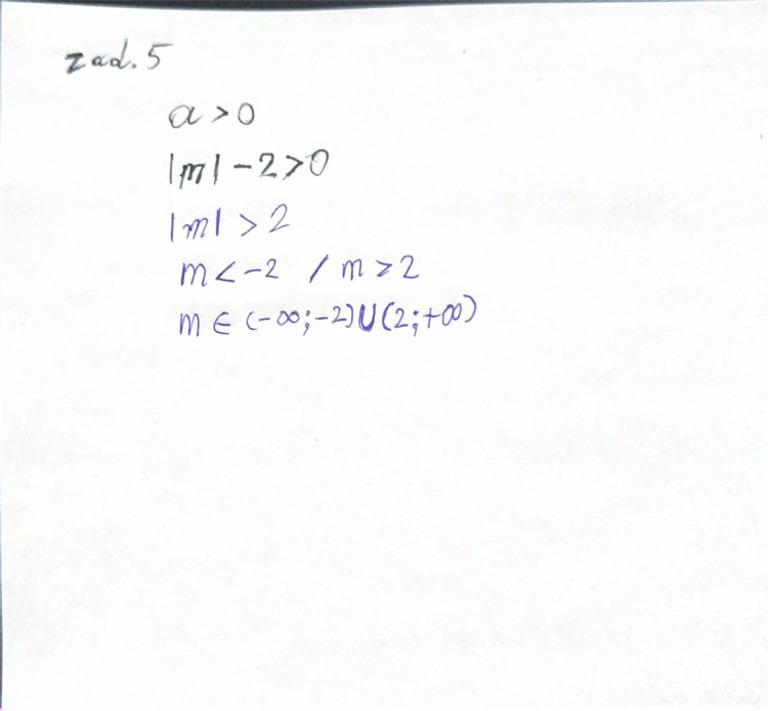 zad. 5
a > 0
|m| - 2 > 0
|m| > 2
m < -2 / m > 2
m ∈ (-∞; -2) ∪ (2; +∞)